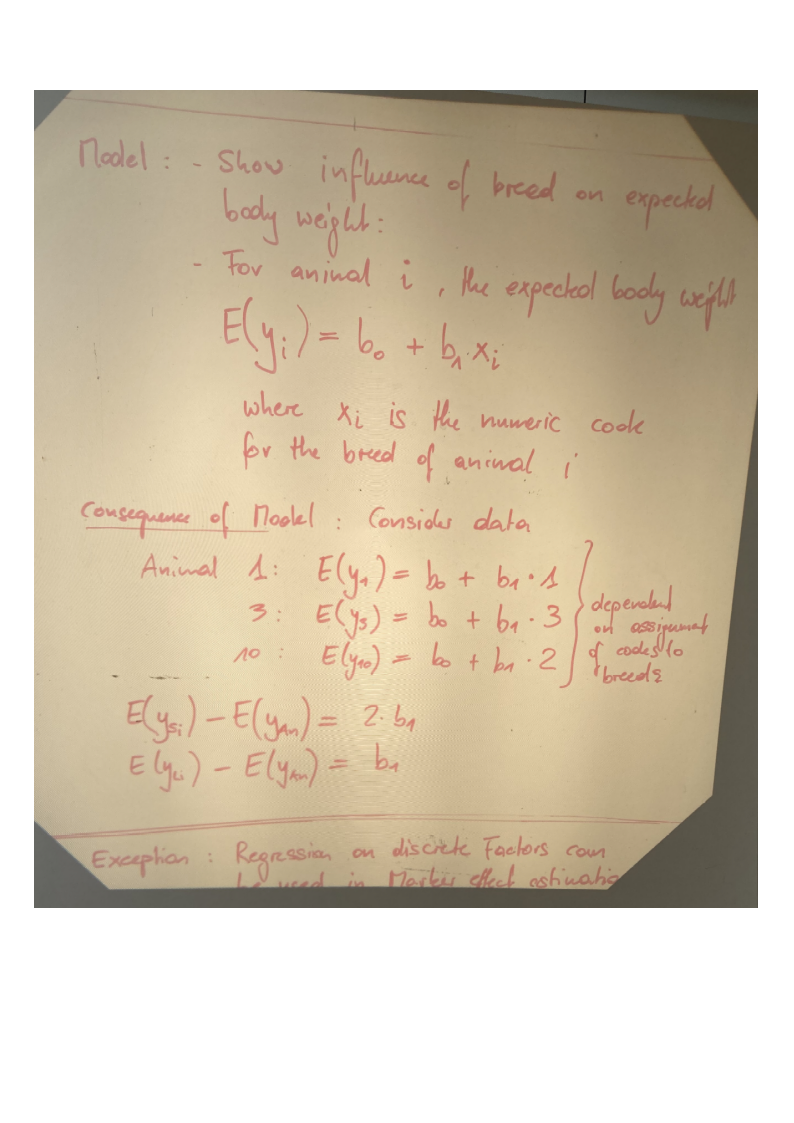 Model : - Show influence of breed on expected
body weight :
- For animal i , the expected body weight
E(y_i) = b_0 + b_1 · x_i
where x_i is the numeric code
for the breed of animal i
Consequence of Model : Consider data
Animal 1 : E(y_1) = b_0 + b_1 · 1
3 : E(y_3) = b_0 + b_1 · 3
10 : E(y_10) = b_0 + b_1 · 2
dependent
on assignment
of codes to
breeds
E(y_Si) – E(y_An) = 2 · b_1
E(y_Li) – E(y_An) = b_1
Exception : Regression on discrete Factors can
be used in Marker effect estimatio